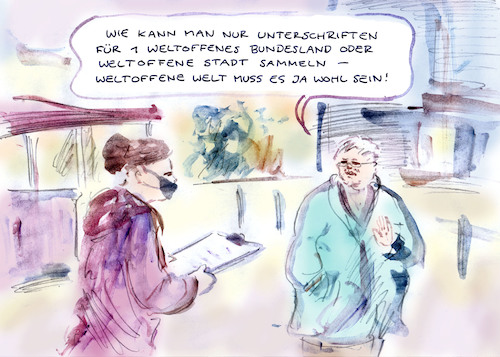 WIE KANN MAN NUR UNTERSCHRIFTEN
FÜR 1 WELTOFFENES BUNDESLAND ODER
WELTOFFENE STADT SAMMELN –
WELTOFFENE WELT MUSS ES JA WOHL SEIN!